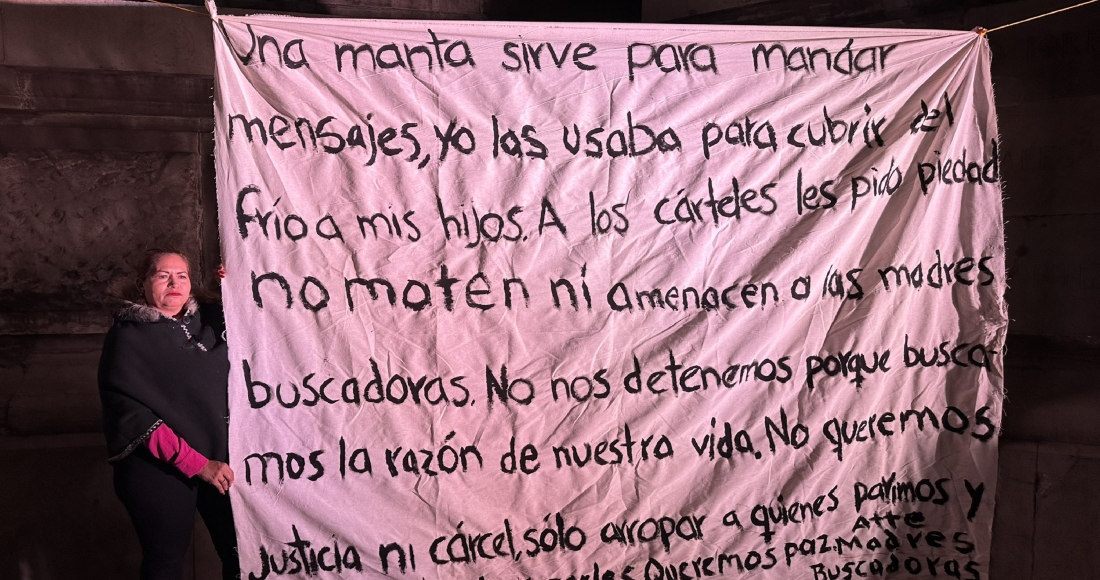 Una manta sirve para mandar
mensajes, yo las usaba para cubrir del
frío a mis hijos. A los cárteles les pido piedad
no maten ni amenacen a las madres
buscadoras. No nos detenemos porque busca-
mos la razón de nuestra vida. No queremos
justicia ni cárcel, sólo arropar a quienes parimos y
Queremos paz. Atte
Madres
Buscadoras